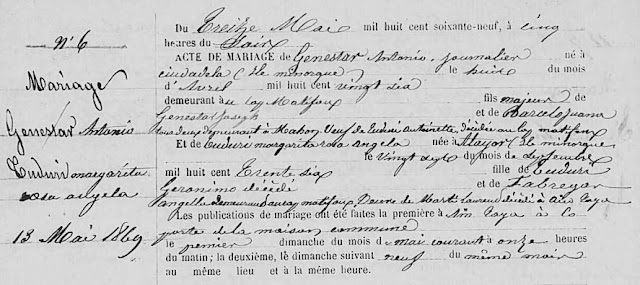 N° 6
Mariage
Genestar Antonio
Tuduri margarita
rosa angela
13 Mai 1869
Du Treize Mai mil huit cent soixante-neuf, à cinq
heures du Soir
ACTE DE MARIAGE de Genestar Antonio, journalier né à
ciudadela (île minorque) le huit du mois
d'Avril mil huit cent vingt six
demeurant au cap Matifoux fils majeur de
Genestar Joseph et de Barcelo Juana
tous deux demeurant à Mahon, Veuf de Tuduri Antoinette, décédée au cap matifoux
Et de Tuduri margarita rosa Angela née à Alayor (île minorque
le Vingt sept du mois de Septembre
mil huit cent Trente six fille de Tuduri
Geronimo décédé et de Fabregar
angelle demeurant au cap matifoux Veuve de Marti Laurent décédé à Aïn Taya
Les publications de mariage ont été faites la première à Aïn Taya à la
porte de la maison commune
le premier dimanche du mois de mai courant à onze heures
du matin; la deuxième, le dimanche suivant neuf du même mois
au même lieu et à la même heure.